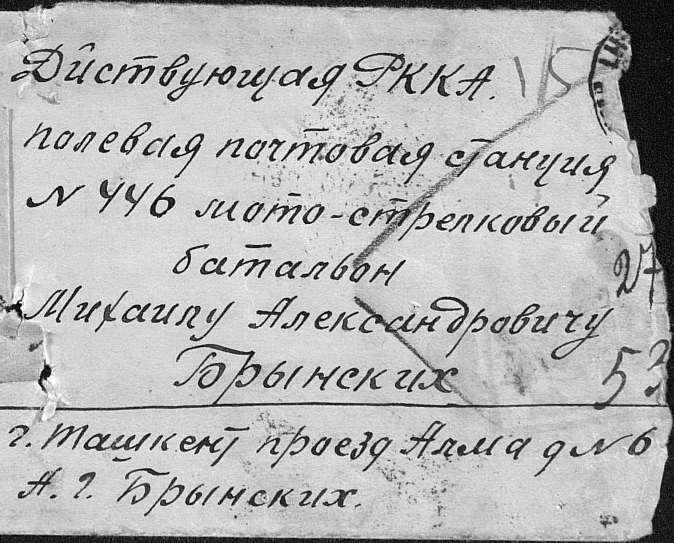 Действующая РККА. 115
полевая почтовая станция
№ 446 мото-стрелковый
батальон
Михаилу Александровичу
Брынских
53
г. Ташкент проезд Алма д № 6
А. Г. Брынских.